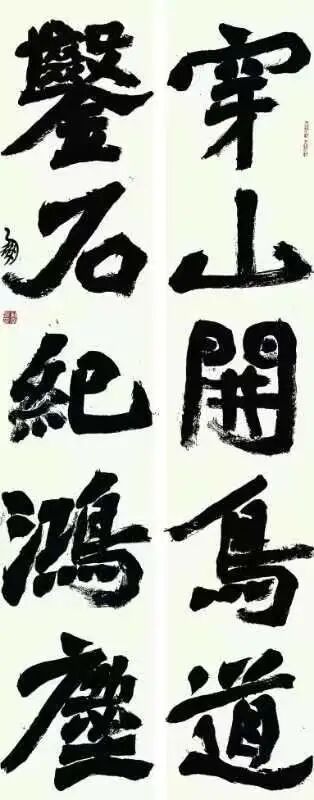 穿山開鳥道
鑿石紀鴻塵